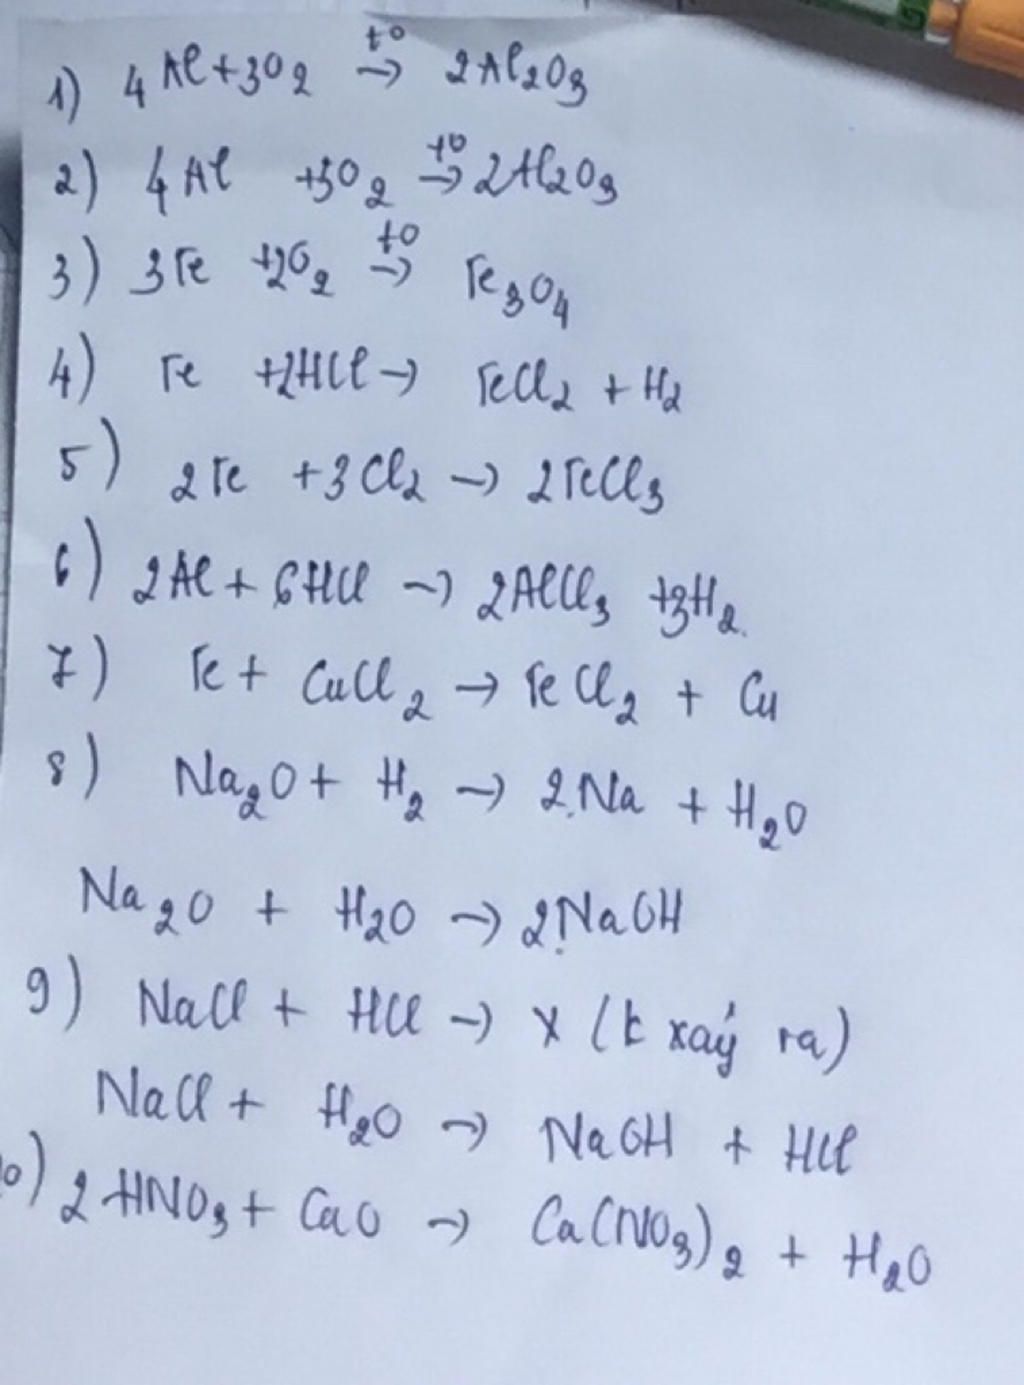 1) 4Al+3O2 t° → 2Al2O3
2) 4Al +3O2 t° → 2Al2O3
3) 3Fe +2O2 t° → Fe3O4
4) Fe +2HCl → FeCl2 + H2
5) 2Fe +3Cl2 → 2FeCl3
6) 2Al + 6HCl → 2AlCl3 +3H2.
7) Fe + CuCl2 → FeCl2 + Cu
8) Na2O + H2 → 2.Na + H2O
Na2O + H2O → 2.NaOH
9) NaCl + HCl → X (k xaỷ ra)
NaCl + H2O → NaOH + HCl
10) 2HNO3 + CaO → Ca(NO3)2 + H2O